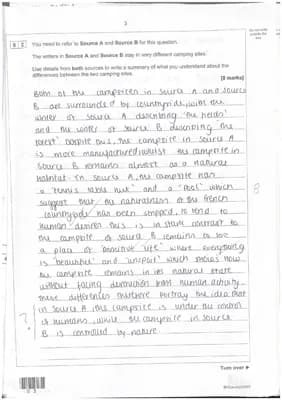 3
Do not write outside the box
0 2 You need to refer to Source A and Source B for this question.
The writers in Source A and Source B stay in very different camping sites.
Use details from both sources to write a summary of what you understand about the differences between the two camping sites.
[8 marks]
Both of the campsites in source A and source
B are surrounded by countryside, with the
writer of source A describing 'the fields'
and the writer of source B describing the
forest. Despite this, the campsite in source A
is more manufactured whilst the campsite in
source B remains almost as a natural
habitat. In source A, the campsite has
a "tennis table hut" and a "pool" which
suggest that the naturalness of the French
countryside has been stripped, to tend to
human desires. This is in stark contrast to
the campsite of source B remains to be
a place of "primitive life" where everything
is "beautiful" and "unspoilt" which shows how
the campsite remains in its natural state
without facing destruction from human activity.
These differences therefore portray the idea that
in source A, the campsite is under the control
of humans, while the campsite in source
B is controlled by nature.
8
?
Turn over ►
0 3